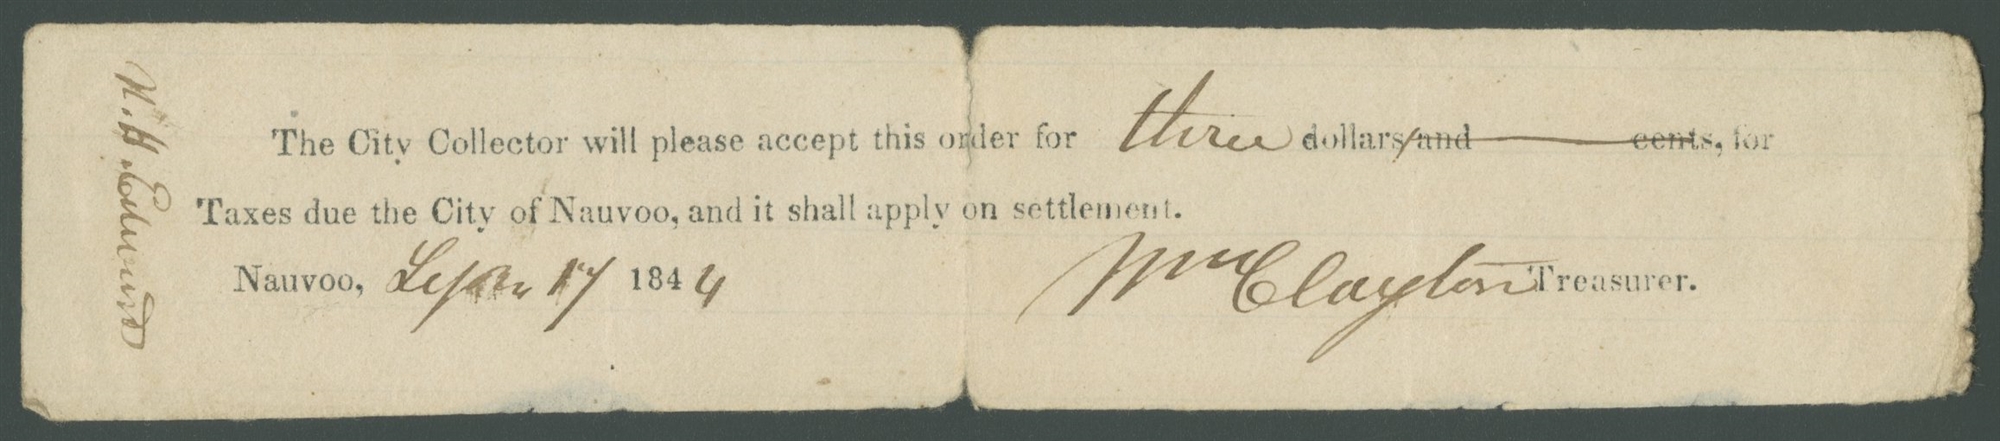 The City Collector will please accept this order for three dollars and cents, for
Taxes due the City of Nauvoo, and it shall apply on settlement.
Nauvoo, 17 1844 Wm Clayton Treasurer.